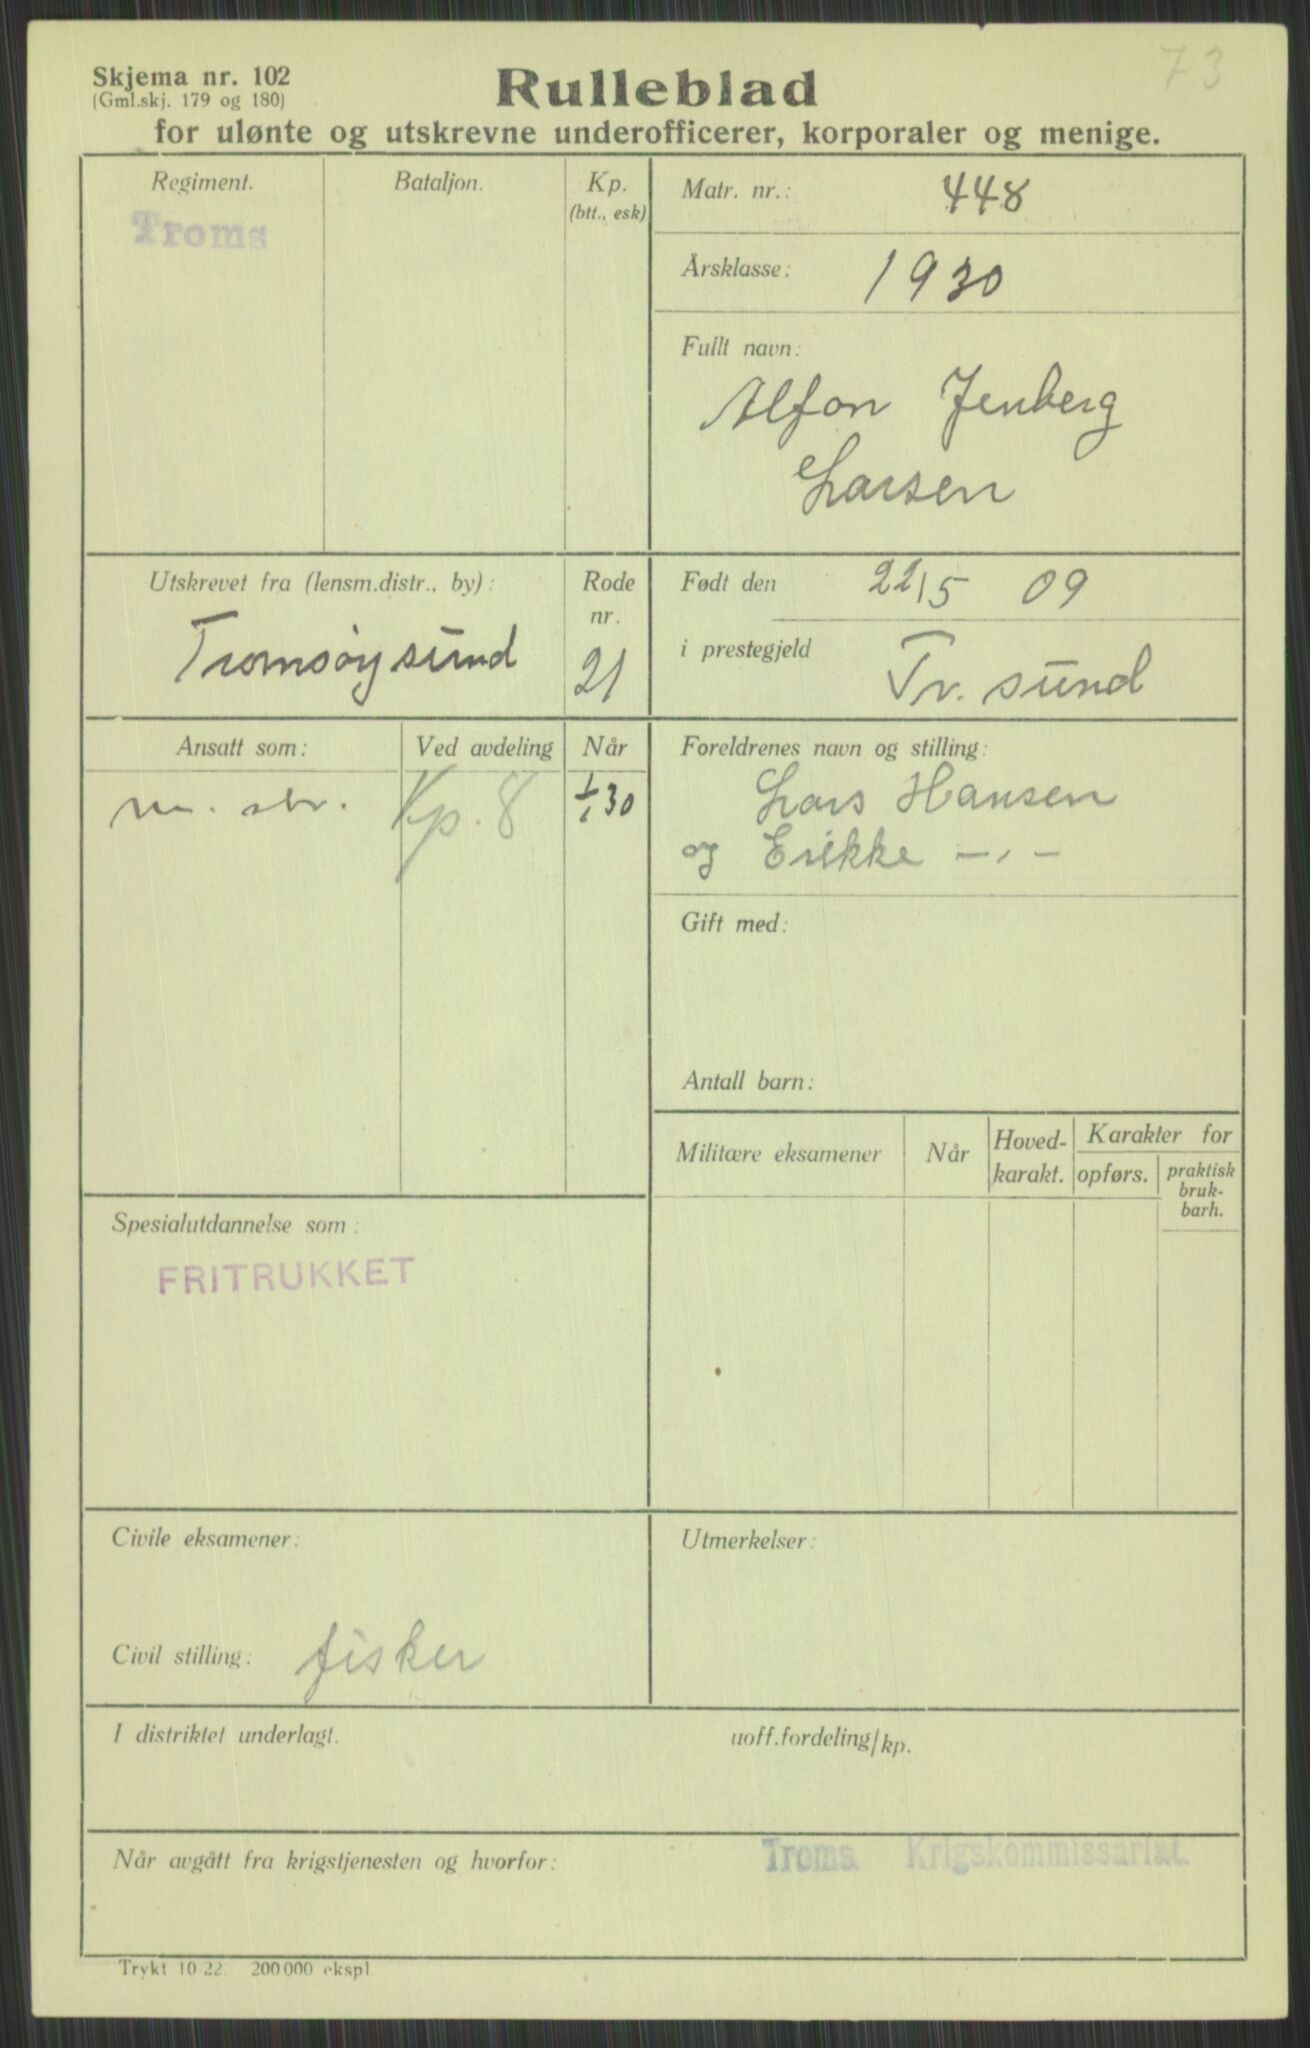 73
Skjema nr. 102
(Gml.skj. 179 og 180)
Rulleblad
for ulønte og utskrevne underofficerer, korporaler og menige.
Regiment.
Troms
Bataljon.
Kp.
(btt., esk)
Matr. nr.: 448
Årsklasse: 1930
Fullt navn:
Alfon Jenberg
Larsen
Utskrevet fra (lensm.distr., by):
Tromsøysund
Rode
nr.
21
Født den 22/5 09
i prestegjeld Tr. sund
Ansatt som:
Ved avdeling
Når
m. str.
Kp. 8
1/1 30
Foreldrenes navn og stilling:
Lars Hansen
og Erikke —,,—
Gift med:
Antall barn:
Militære eksamener
Når
Hoved-
karakt.
Karakter for
opførs.
praktisk
bruk-
barh.
Spesialutdannelse som:
FRITRUKKET
Civile eksamener:
Civil stilling: fisker
Utmerkelser:
I distriktet underlagt.
uoff.fordeling/kp.
Når avgått fra krigstjenesten og hvorfor:
Troms Krigskommissariat.
Trykt 10 22. 200 000 ekspl.